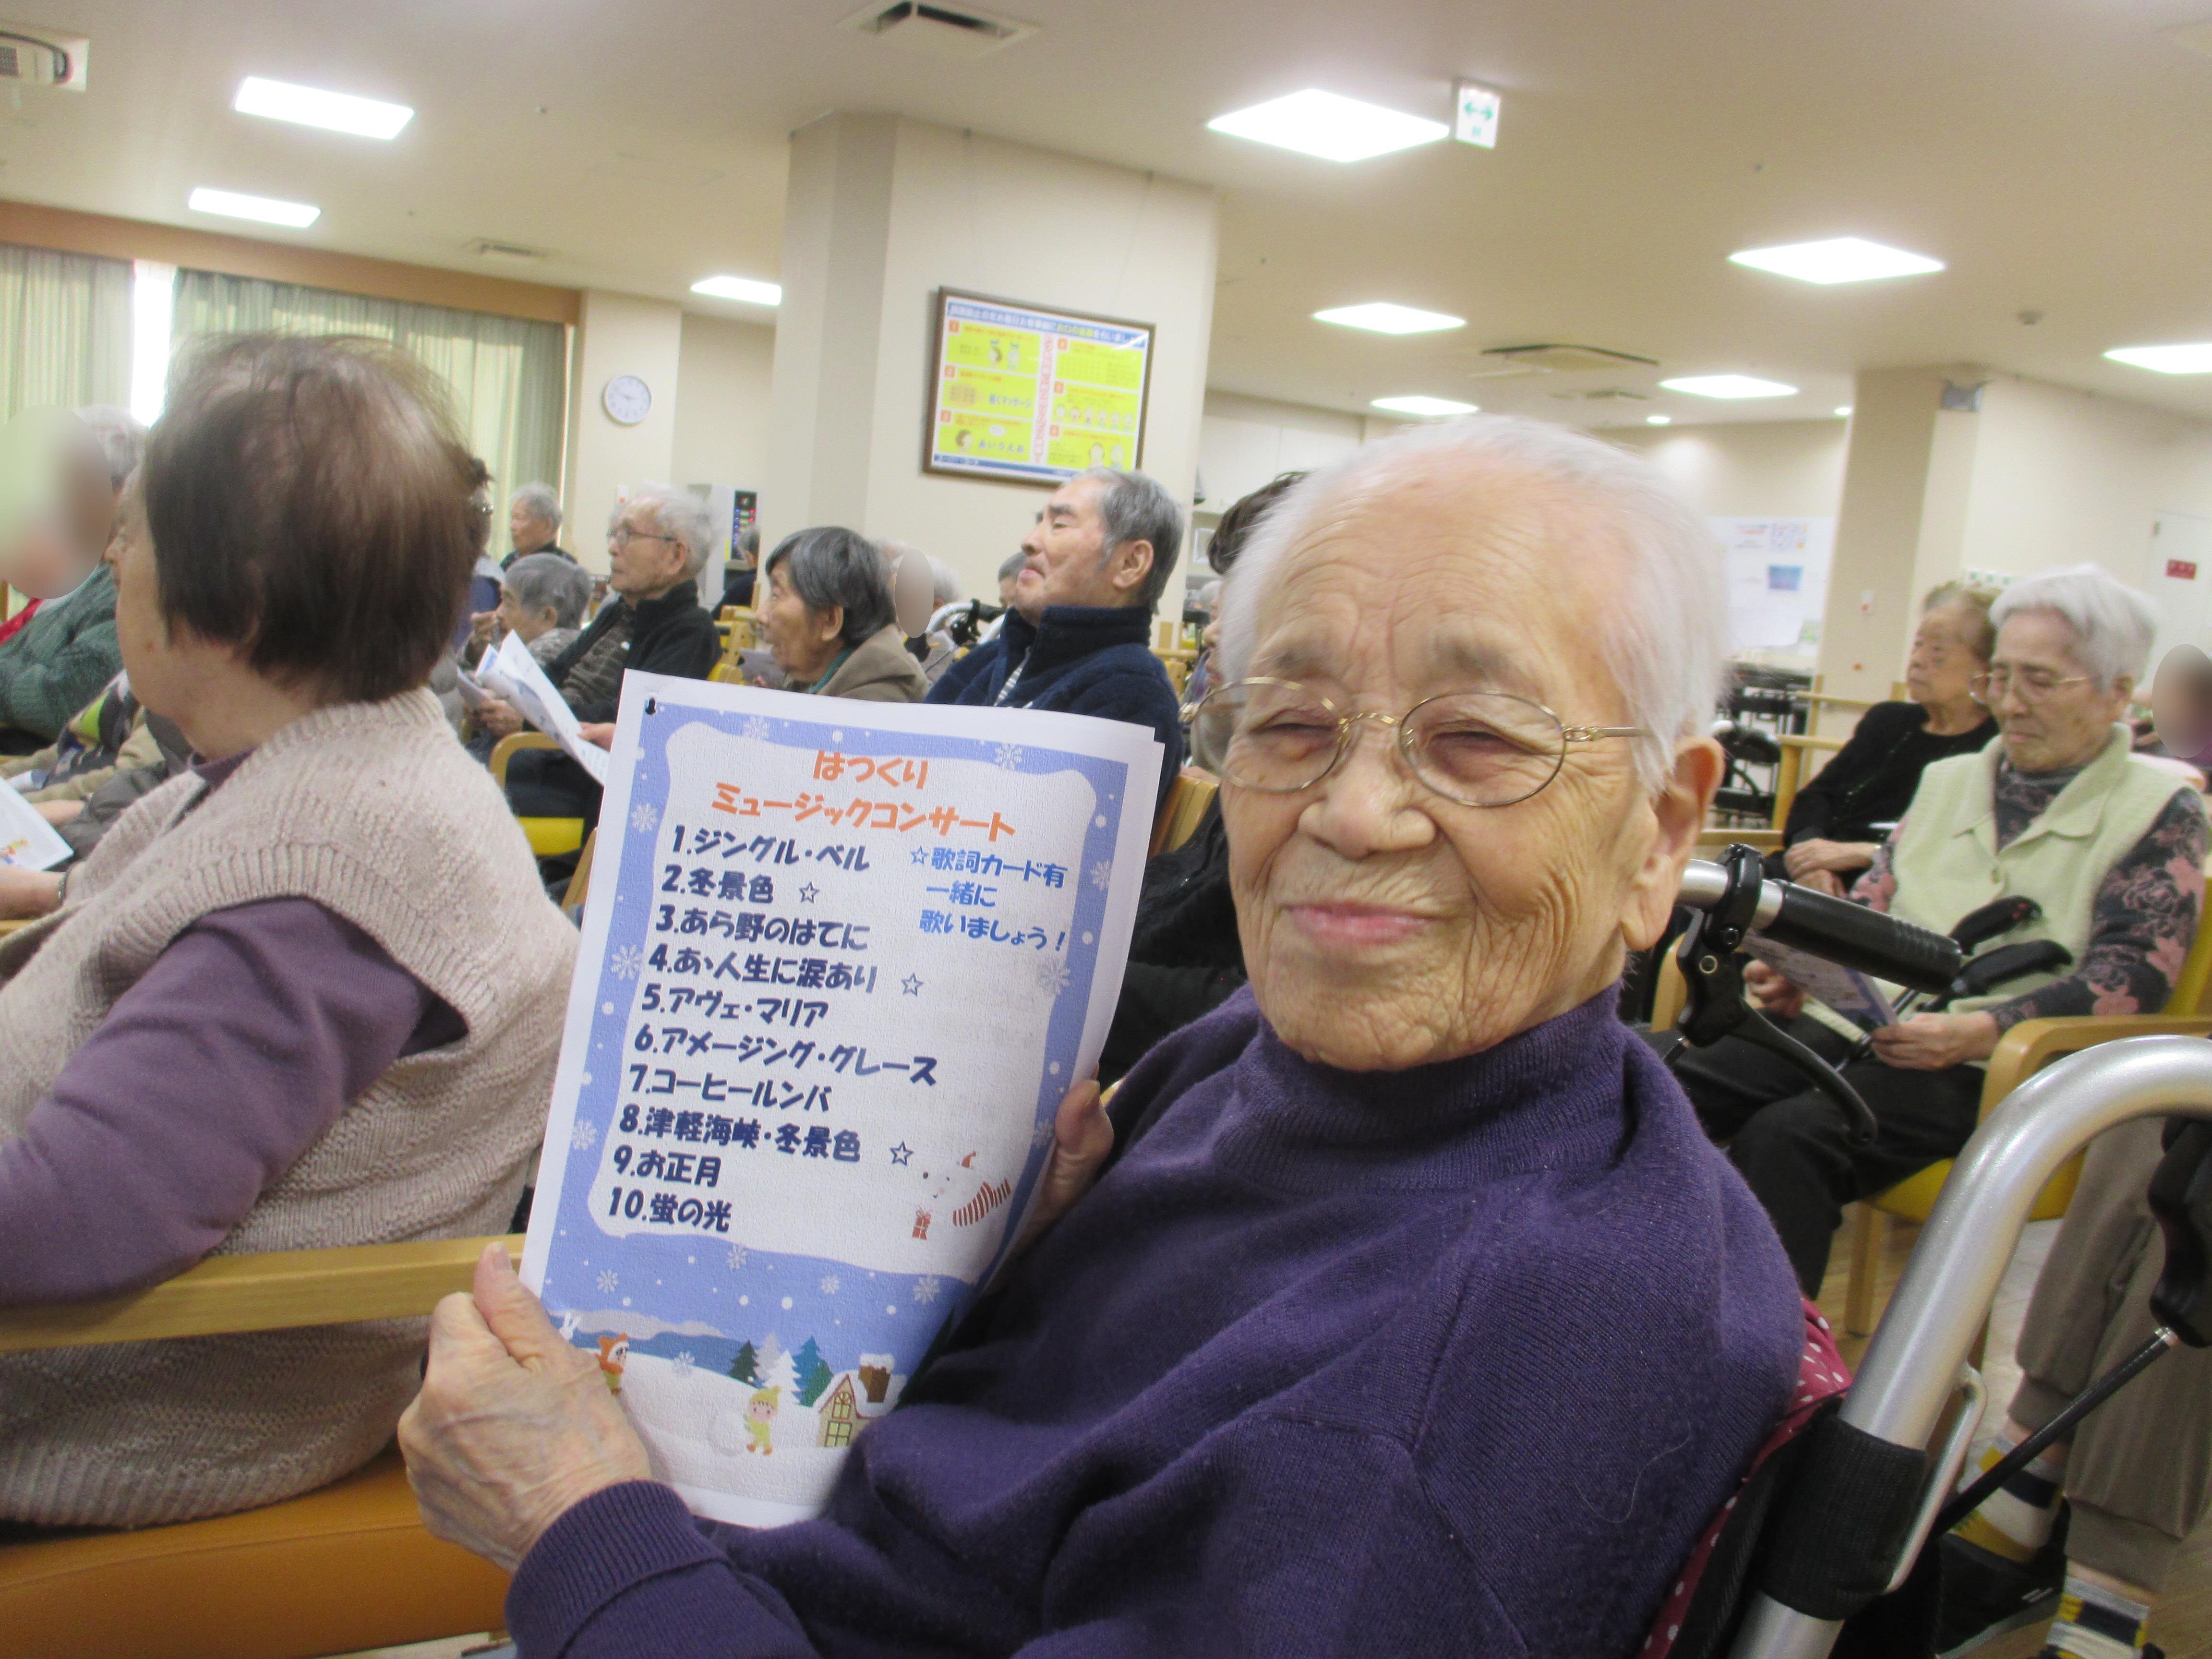 はつくり
ミュージックコンサート
1.ジングル・ベル
2.冬景色 ☆
3.あら野のはてに
4.あゝ人生に涙あり ☆
5.アヴェ・マリア
6.アメージング・グレース
7.コーヒールンバ
8.津軽海峡・冬景色 ☆
9.お正月
10.蛍の光
☆歌詞カード有
一緒に
歌いましょう！
あいうえお